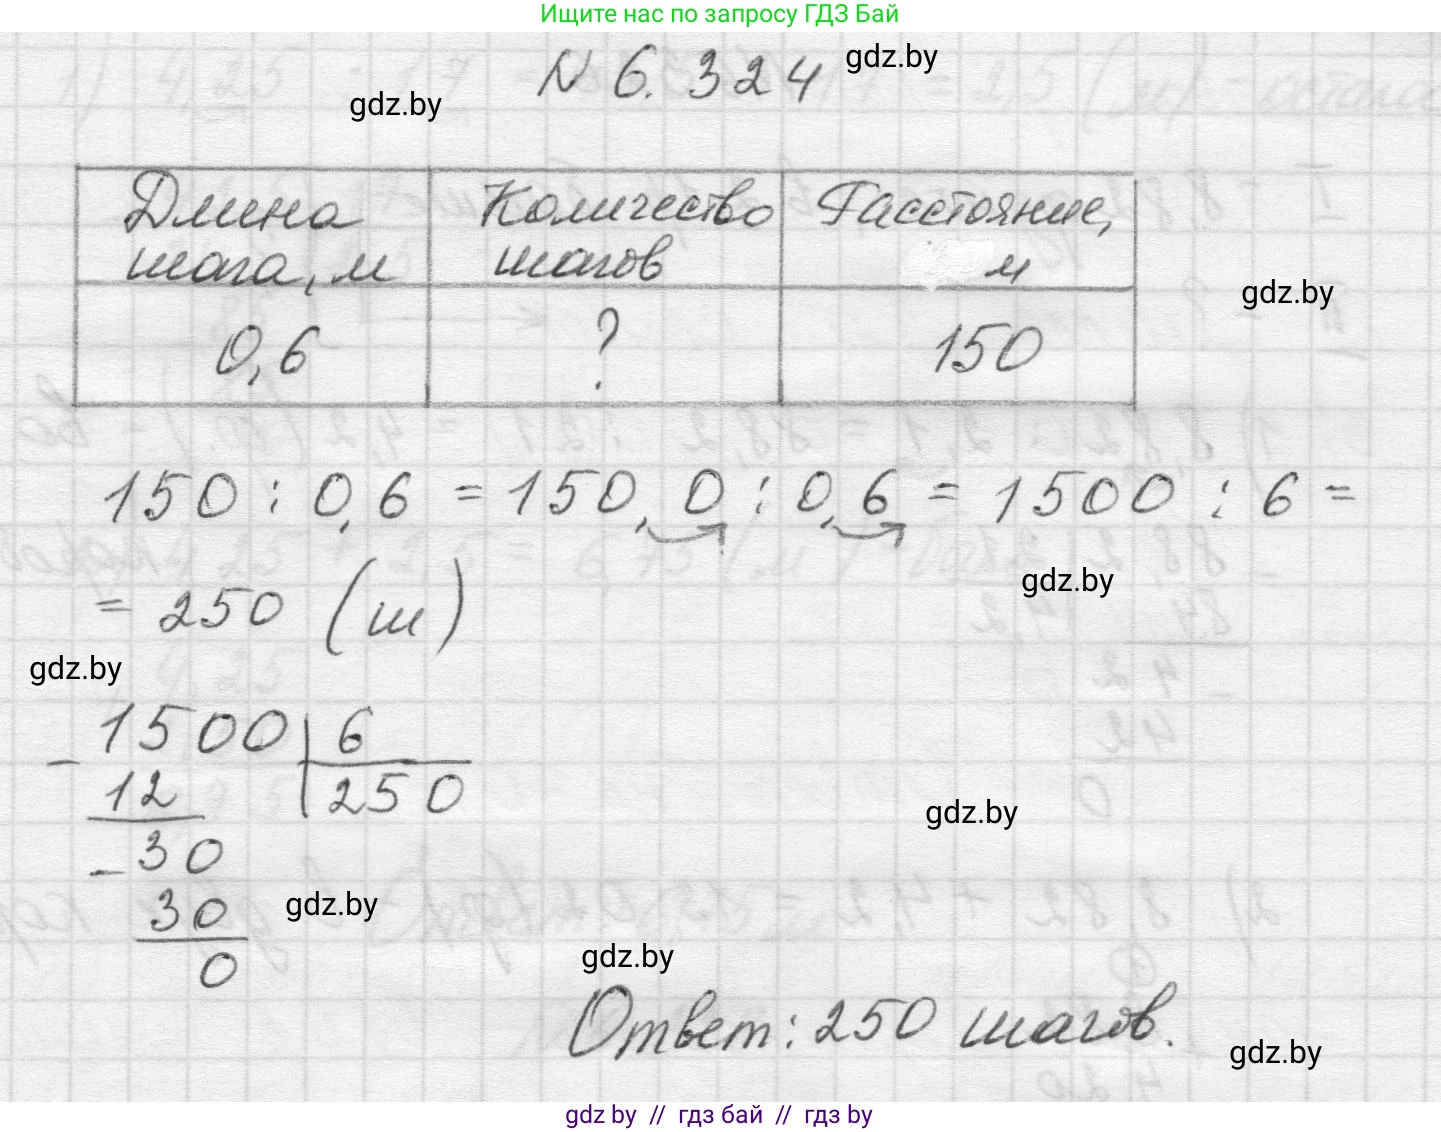 Ищите нас по запросу ГДЗ Бай
N 6.324
gdz.by
gdz.by
Длина шага, м
Количество шагов
Расстояние, м
gdz.by
0,6
?
150
150 : 0,6 = 150,0 : 0,6 = 1500 : 6 =
= 250 (ш)
gdz.by
gdz.by
1500 | 6
- 12 | 250
gdz.by
- 30
30
gdz.by
0
gdz.by
Ответ: 250 шагов.
gdz.by
gdz by // гдз бай // гдз by